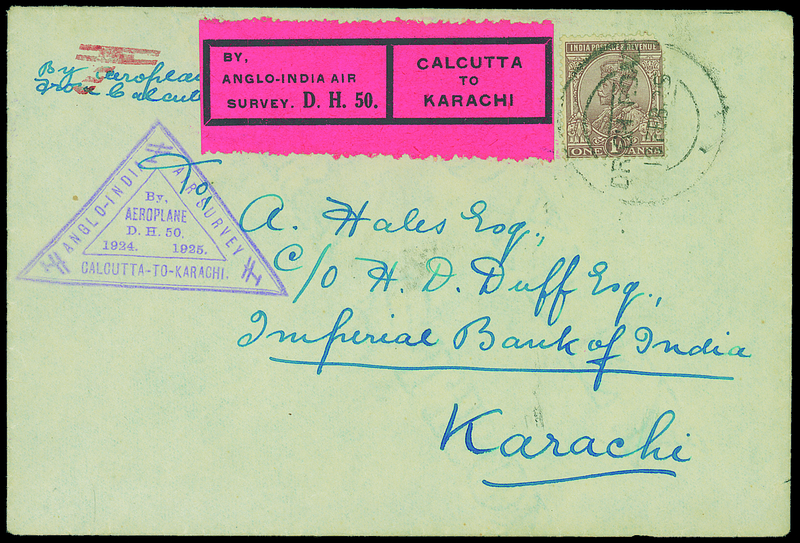 By Aeroplan
from Calcut
BY,
ANGLO-INDIA AIR
SURVEY. D. H. 50.
CALCUTTA
TO
KARACHI
INDIA POSTAGE & REVENUE
ONE ANNA
ANGLO-INDIA AIR SURVEY
By,
AEROPLANE
D. H. 50.
1924. 1925.
CALCUTTA-TO-KARACHI.
To,
A. Hales Esq.,
C/O H. D. Duff Esq.,
Imperial Bank of India
Karachi